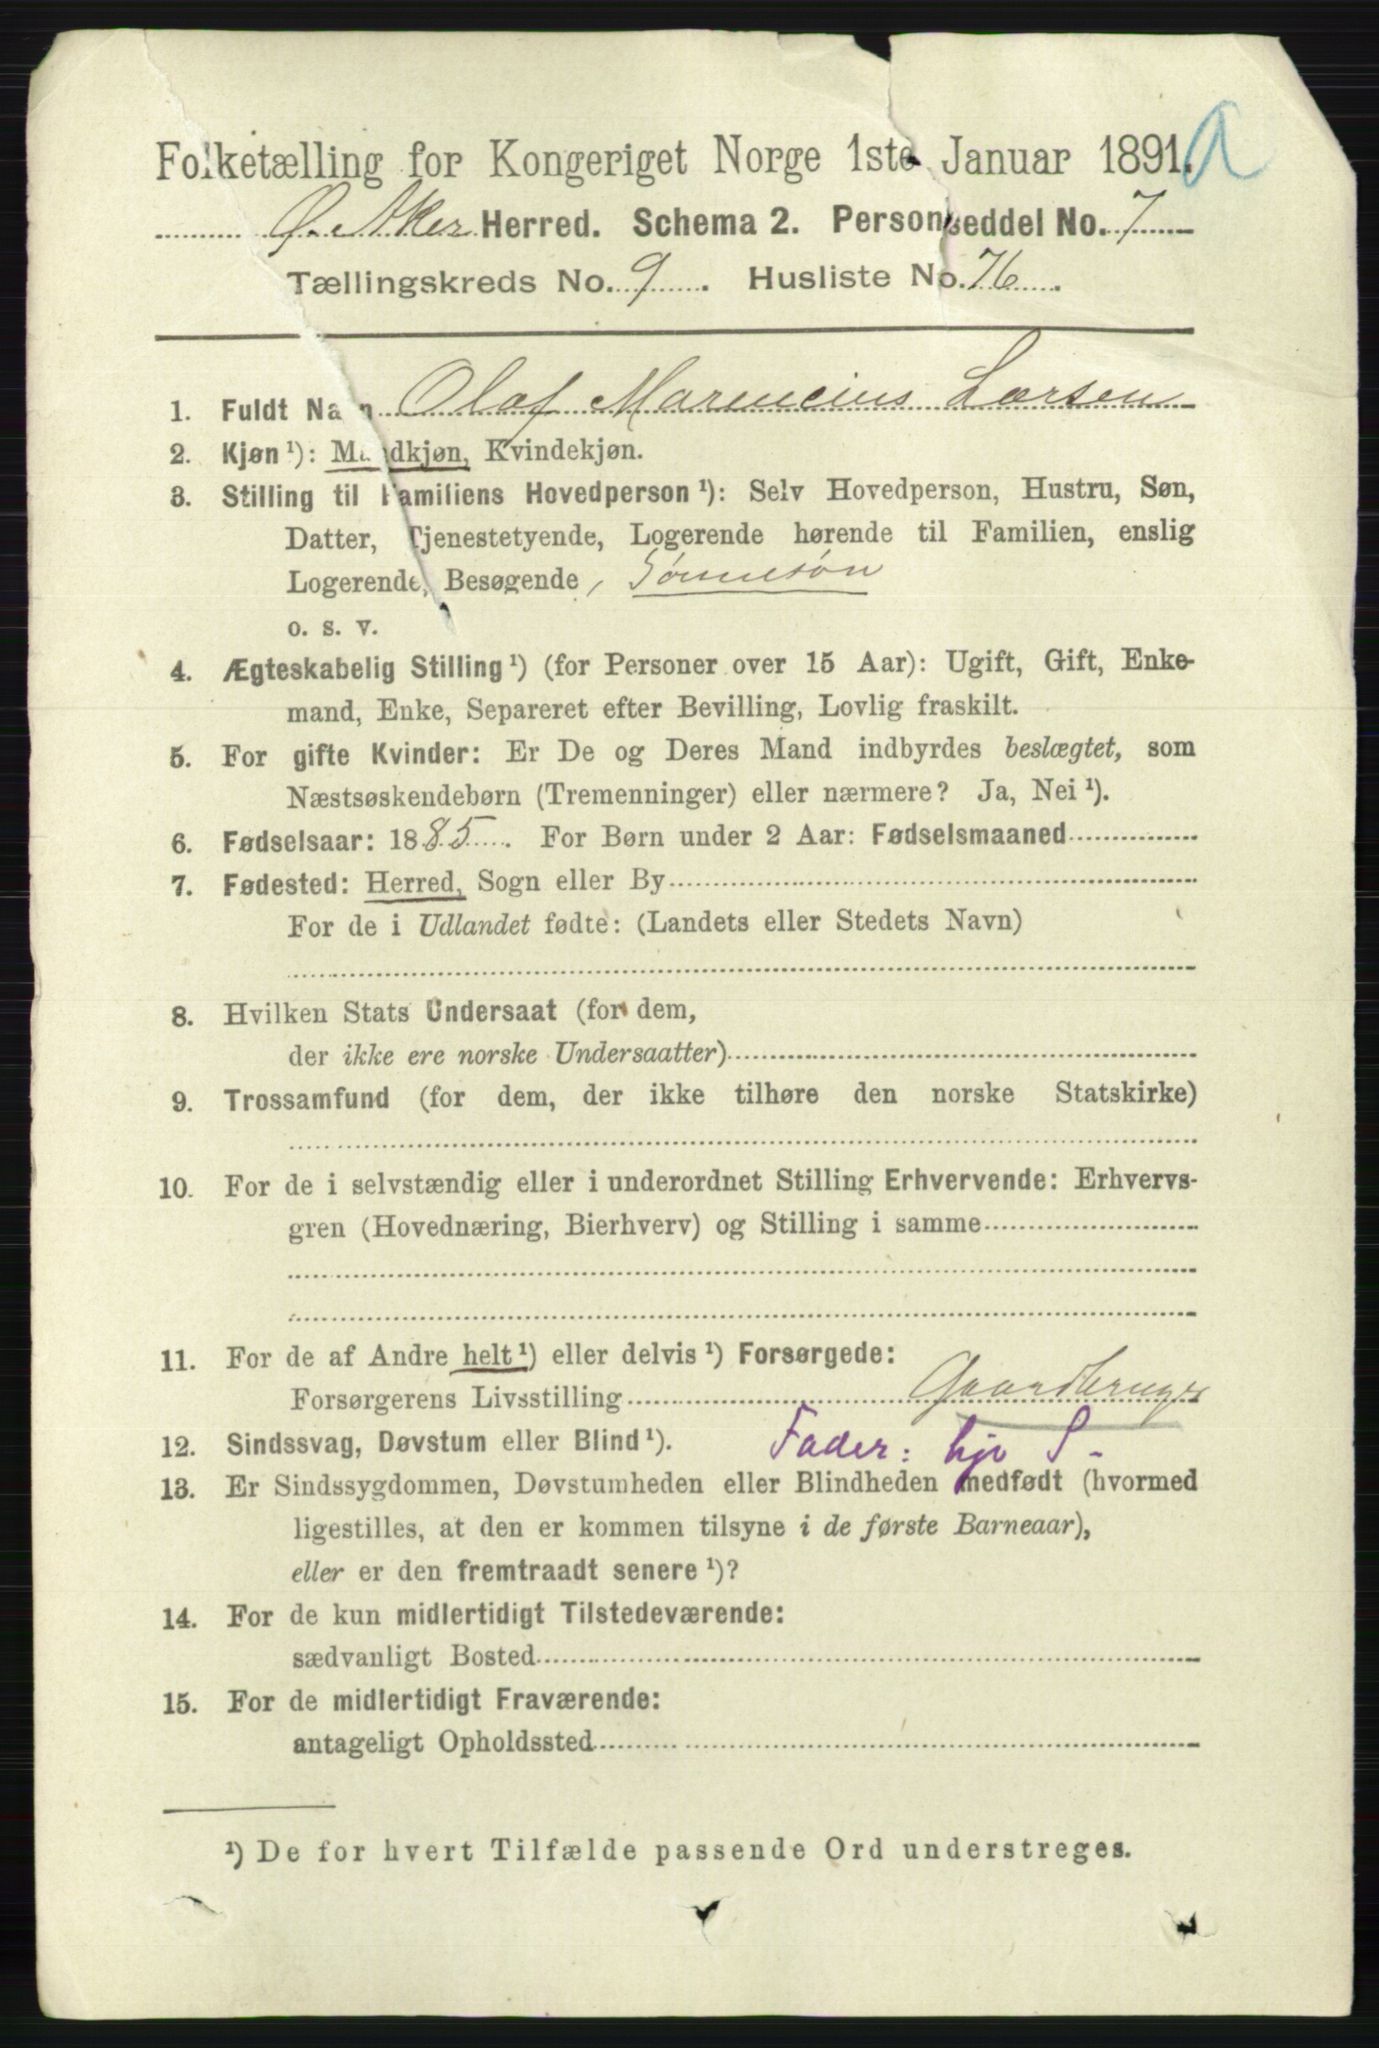 Folketælling for Kongeriget Norge 1ste Januar 1891.
Ø. Aker Herred. Schema 2. Personseddel No. 7
Tællingskreds No. 9. Husliste No. 76.
1. Fuldt Navn Olaf Marencius Larsen
2. Kjøn¹): Mandkjøn, Kvindekjøn.
3. Stilling til Familiens Hovedperson¹): Selv Hovedperson, Hustru, Søn,
Datter, Tjenestetyende, Logerende hørende til Familien, enslig
Logerende, Besøgende, Sønnesøn
o. s. v.
4. Ægteskabelig Stilling¹) (for Personer over 15 Aar): Ugift, Gift, Enke-
mand, Enke, Separeret efter Bevilling, Lovlig fraskilt.
5. For gifte Kvinder: Er De og Deres Mand indbyrdes beslægtet, som
Næstsøskendebørn (Tremenninger) eller nærmere? Ja, Nei¹).
6. Fødselsaar: 1885. For Børn under 2 Aar: Fødselsmaaned
7. Fødested: Herred, Sogn eller By
For de i Udlandet fødte: (Landets eller Stedets Navn)
8. Hvilken Stats Undersaat (for dem,
der ikke ere norske Undersaatter)
9. Trossamfund (for dem, der ikke tilhøre den norske Statskirke)
10. For de i selvstændig eller i underordnet Stilling Erhvervende: Erhvervs-
gren (Hovednæring, Bierhverv) og Stilling i samme
11. For de af Andre helt¹) eller delvis¹) Forsørgede:
Forsørgerens Livsstilling Gaardbruger
12. Sindssvag, Døvstum eller Blind¹). Fader:
13. Er Sindssygdommen, Døvstumheden eller Blindheden medfødt (hvormed
ligestilles, at den er kommen tilsyne i de første Barneaar),
eller er den fremtraadt senere¹)?
14. For de kun midlertidigt Tilstedeværende:
sædvanligt Bosted
15. For de midlertidigt Fraværende:
antageligt Opholdssted
¹) De for hvert Tilfælde passende Ord understreges.